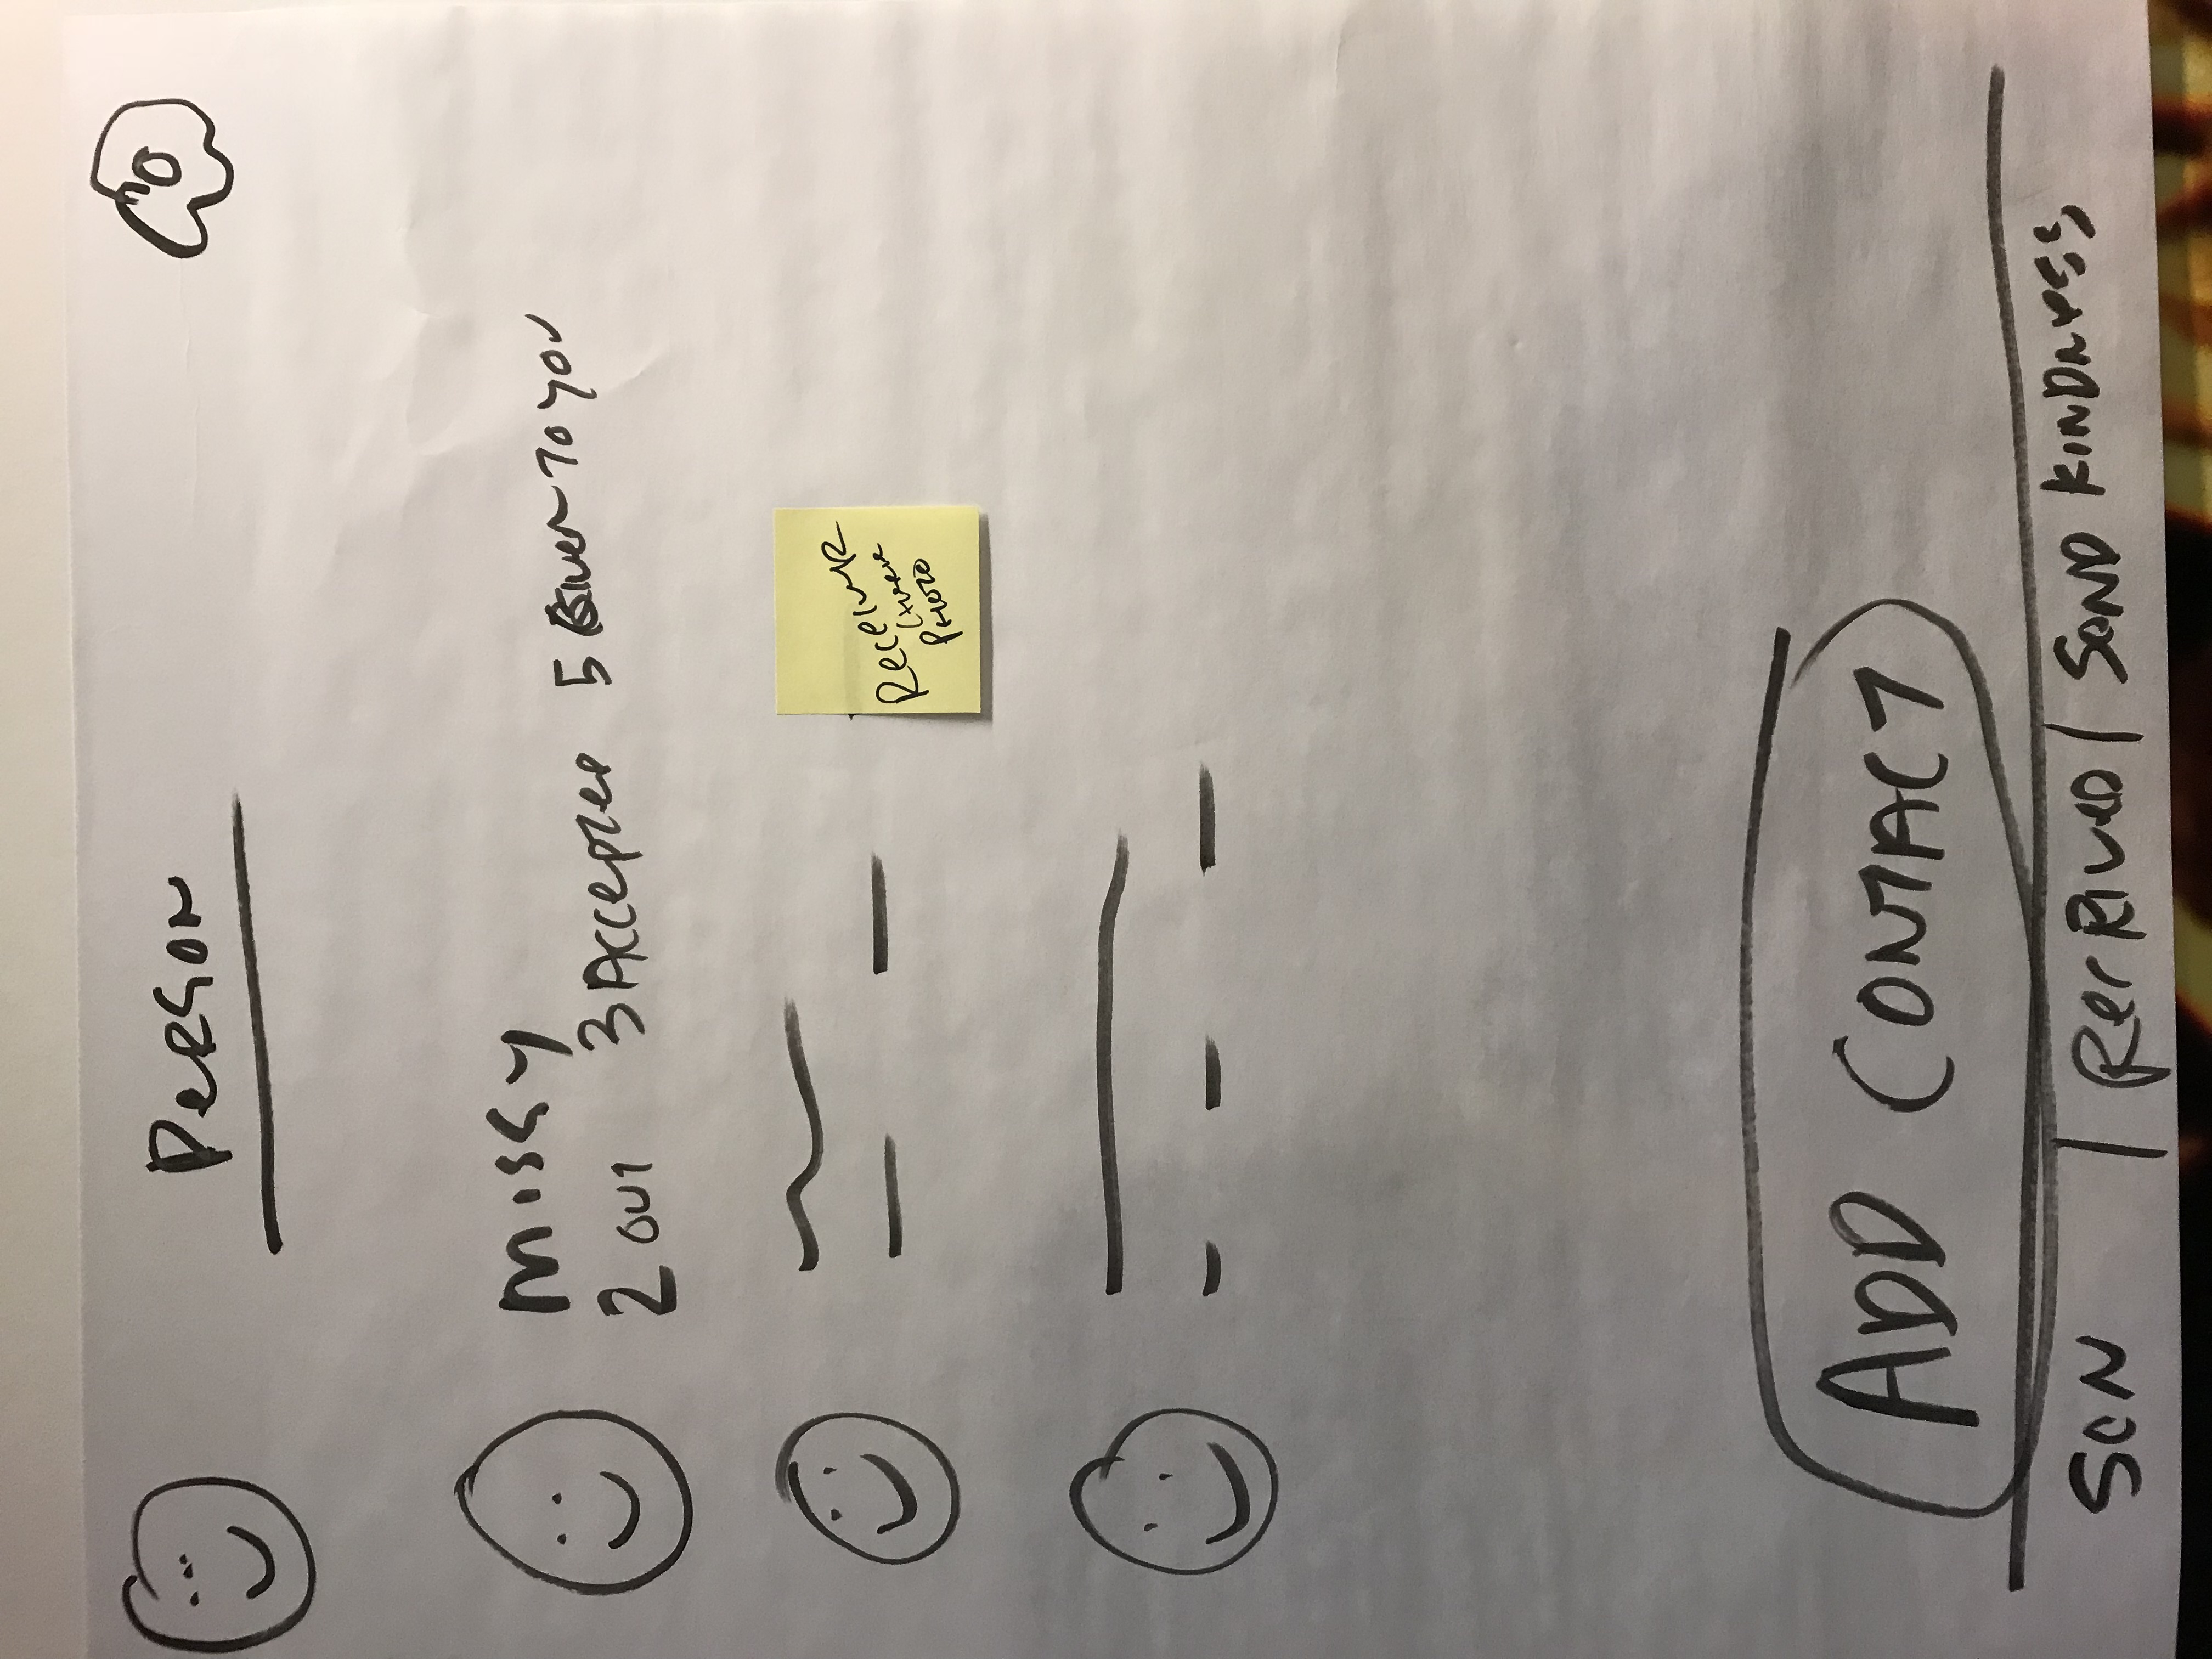 Person
Missy
2 out 3 Accepted 5 Given to you
Receiver
Photo
ADD CONTACT
Sen | Received | Send Kindness